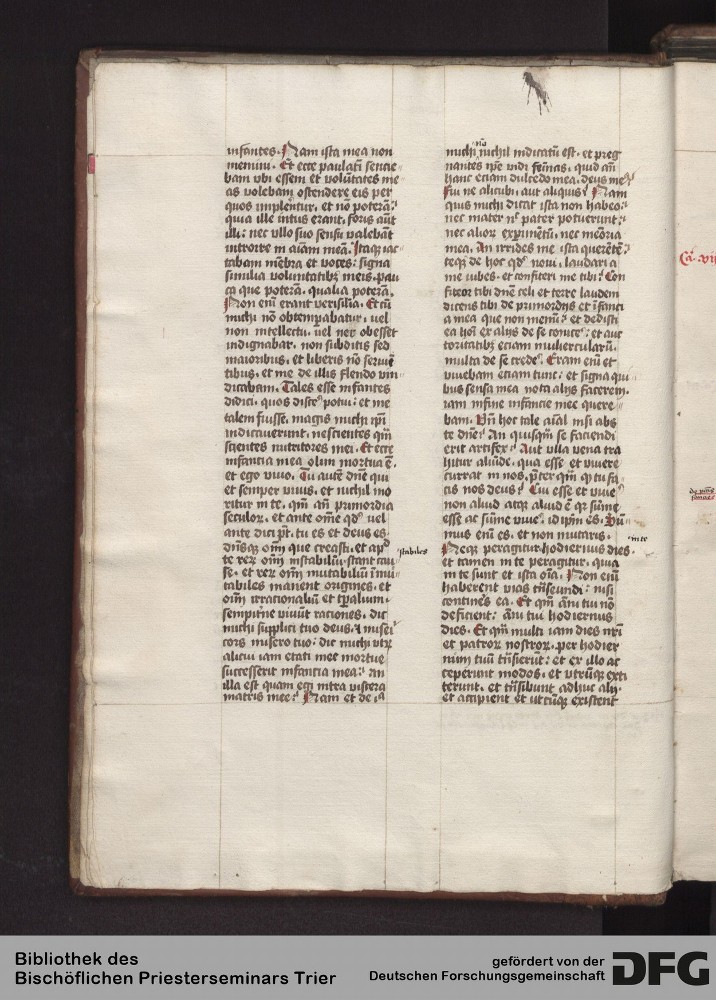 infantes. Nam ista mea non
memini. Et ecce paulatī sentie
bam vbi essem et volūtates me
as volebam ostendere eis per
quos implerētur. et nō poterā.
quia ille intus erant. foris aūt
illi. nec vllo suo sensu valebāt
introire in aīam meā. Itaqꝫ iac
tabam mēbra et voces. signa
similia voluntatibꝫ meis. pau
ca que poterā. qualia poterā.
Non enī erant verisilia. Et cū
michi nō obtemperabatur. uel
non intellectu. uel ne obesset
indignabar. non subditis sed
maioribus. et liberis nō seruiē
tibus. et me de illis flendo vin
dicabam. Tales esse infantes
didici. quos discē potui. et me
talem fuisse. magis michi ipī
indicauerunt. nescientes qm̄
scientes nutritores mei. Et ecce
infantia mea olim mortua ē.
et ego viuo. Tu autē dn̄e qui
et semper viuis. et nichil mo
ritur in te. qm̄ an̄ primordia
seculoꝝ. et ante om̄e qd' vel
ante dici pt̄. tu es et deus es
dn̄sqꝫ om̄ que creasti. et apd'
te reꝝ om̄ instabiliū. stant cau
se. et reꝝ om̄ mutabiliū ī̄mu
tabiles manent origines. et
om̄ irrationaliū et tp̄alium.
sempiterne viuūt raciones. dic
michi supplici tuo deus. misei
cors misero tuo. dic michi vtꝝ
alicui iam etati mee mortue
successerit infantia mea. an
illa est quam egi intra viscera
matris mee. Nam et de ia
stabiles
nō
michi nichil indicatū est. et preg
nantes ipē vidi feminas. quid an̄
hanc eciam dulcedo mea. deus me'
Fui ne alicubi. aut aliquis. Nam
quis michi dicat ista non habeo.
nec mater nec pater potuerunt.
nec alioꝝ experimētū. nec memoria
mea. An irrides me ista querētē.
teqꝫ de hoc qd' noui. laudari a
me iubes. et confiteri me tibi. Con
fiteor tibi dn̄e celi et terre laudem
dicens tibi de primordijs et īfanci
a mea que non memi. et dedisti
ea hoi ex alijs de se conicē. et auc
toritatibꝫ eciam muliercularū.
multa de se credē. Eram enī et
viuebam etiam tunc. et signa qui
bus sensa mea nota alijs facerem.
iam in fine infantie mee quere
bam. Vn̄ hoc tale aīal nisi abs
te dn̄e. An quisqm̄ se faciendi
erit artifex. Aut vlla vena tra
hitur aliūde. qua esse et viuere
currat in nos. pter qm̄ qd' tu fa
cis nos deus. Cui esse et viue
non aliud atqꝫ aliud ē. qꝛ sūme
esse ac sūme viue. id ipm̄ es. Sū
mus enī es. et non mutaris.
Neqꝫ peragitur hodiernus dies.
in te
et tamen in te peragitur. quia
in te sunt et ista oīa. Non enī
haberent vias trāseundi. nisi
contines ea. Et qm̄ anī tui nō
deficient. anī tui hodiernus
dies. Et qm̄ multi iam dies nr̄i
et patroꝝ nostroꝝ. per hodier
num tuū trāsierūt. et ex illo ac
ceperunt modos. et vtrūqꝫ exti
terunt. et trāsibunt adhuc alij.
et accipient et vtcūqꝫ existent
Bibliothek des
Bischöflichen Priesterseminars Trier
gefördert von der
Deutschen Forschungsgemeinschaft
DFG